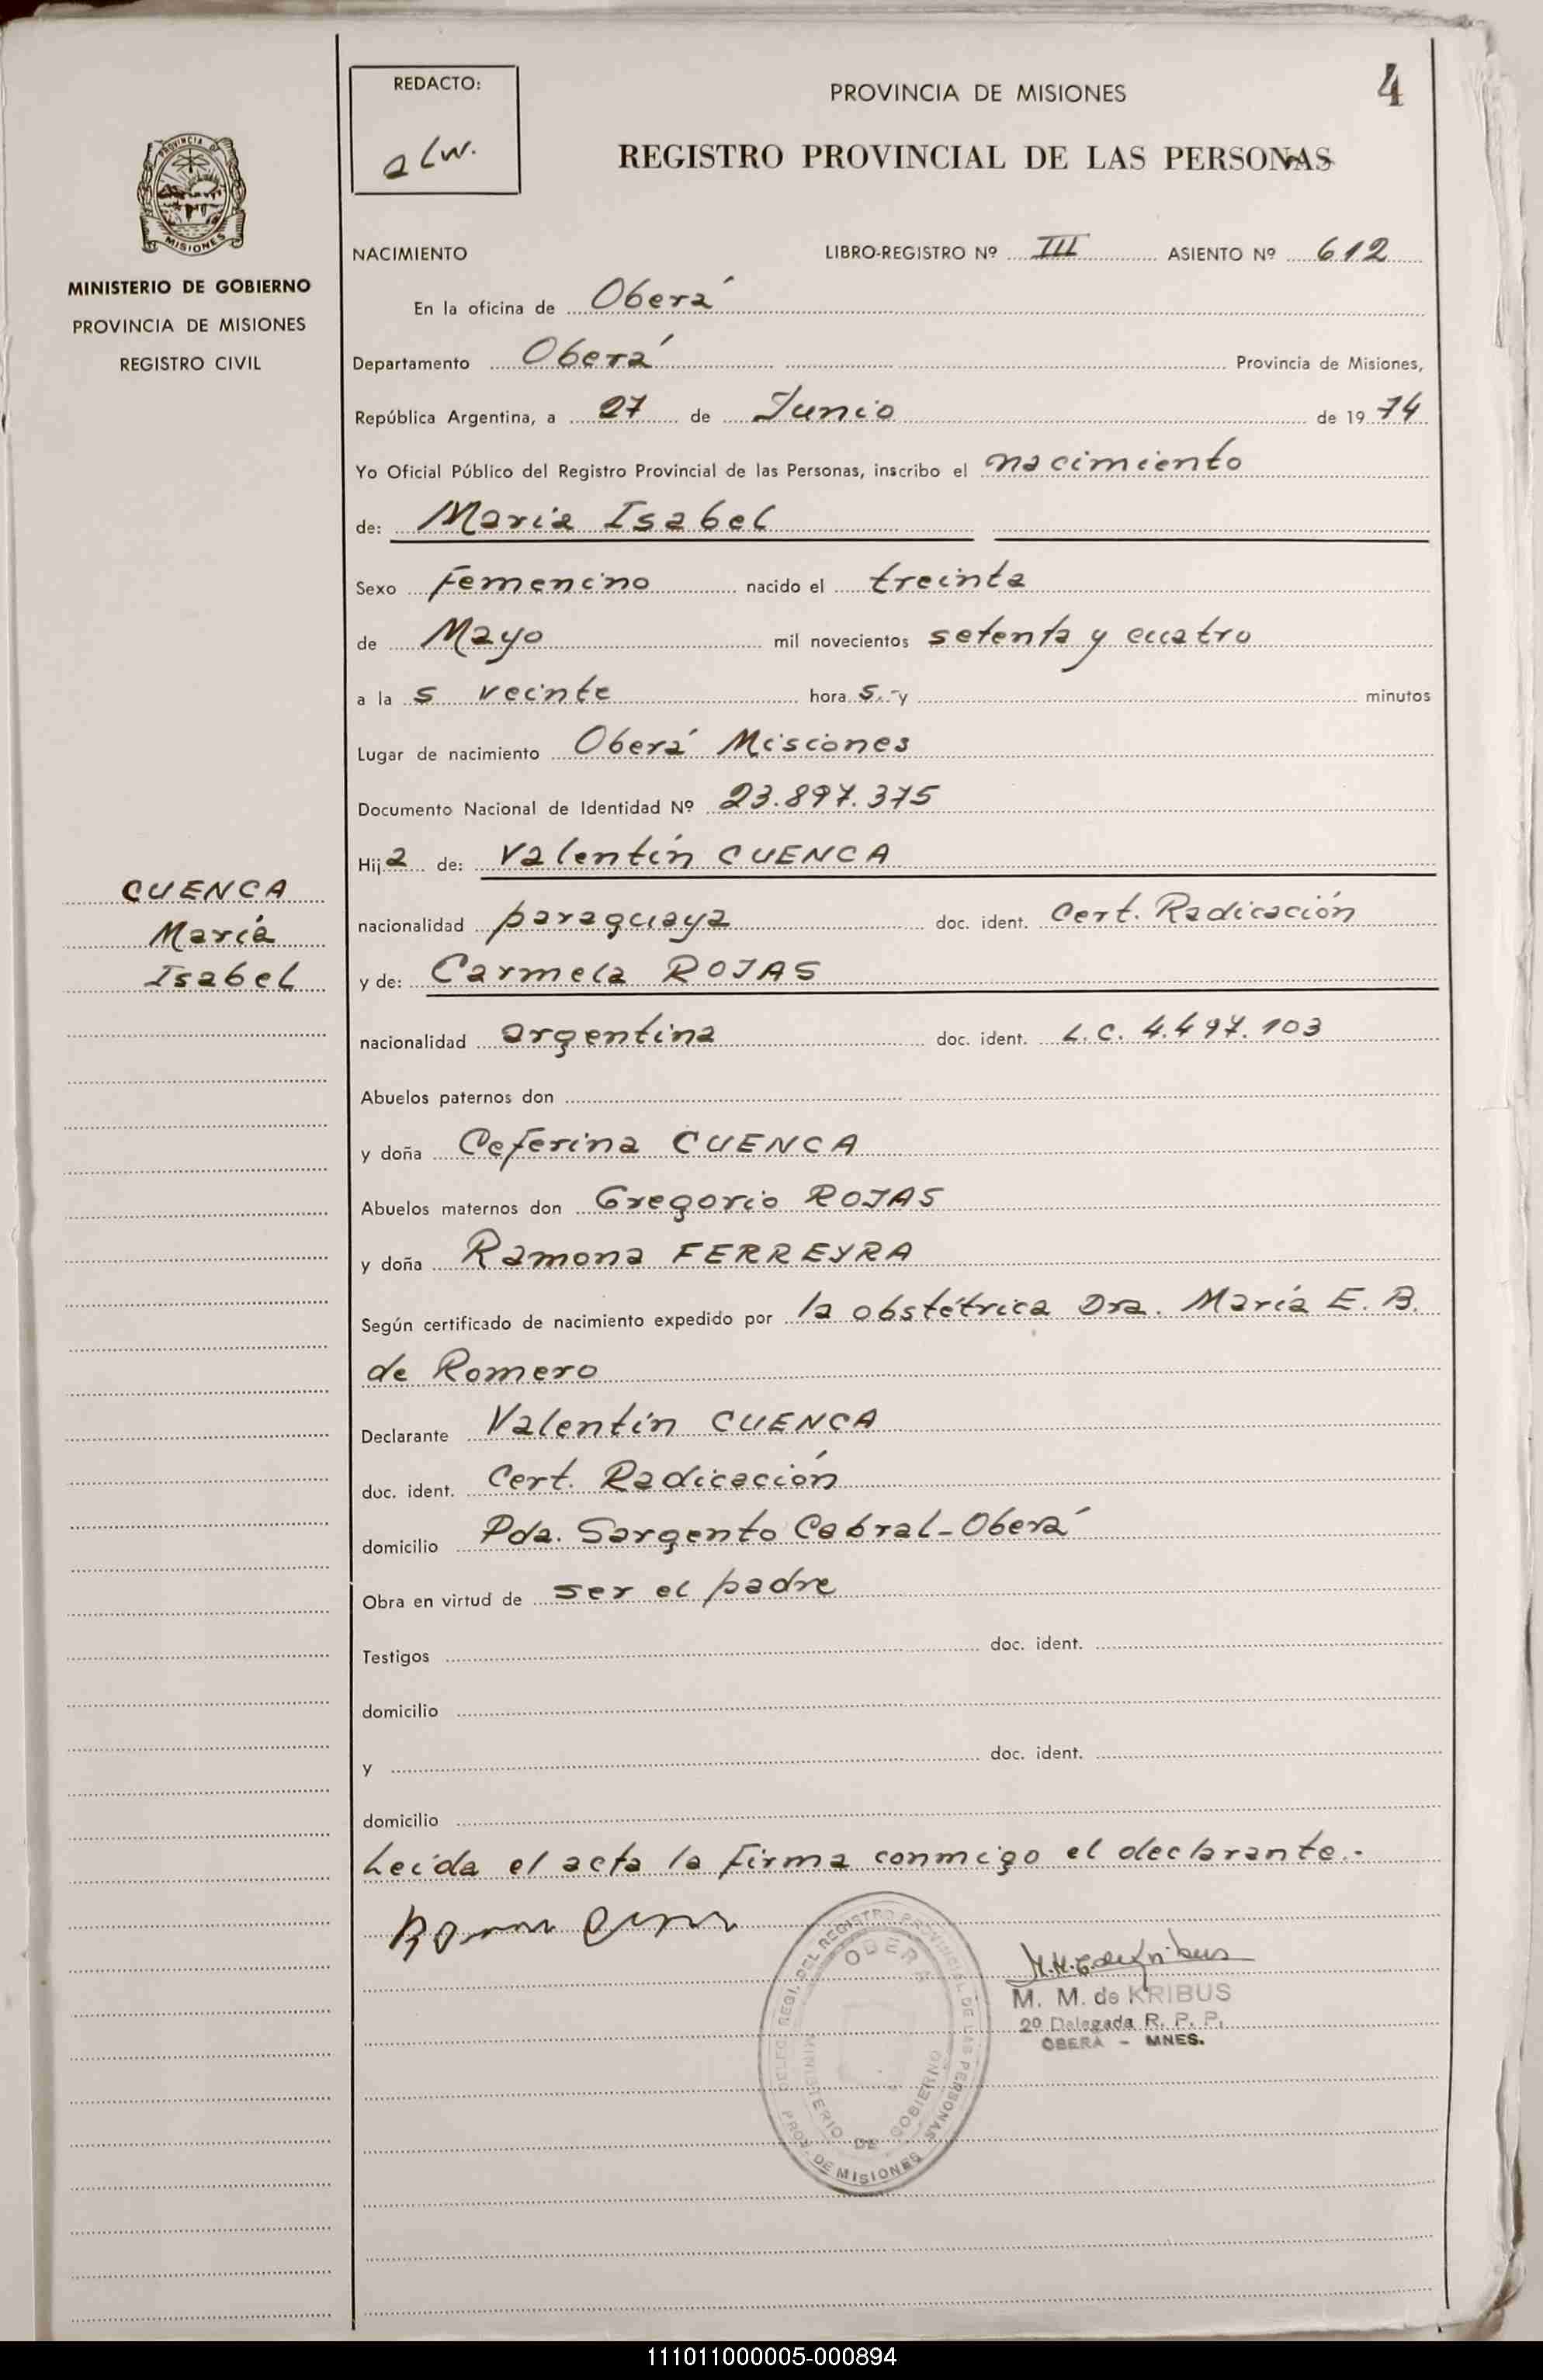 4
REDACTO:
alw.
PROVINCIA DE MISIONES
REGISTRO PROVINCIAL DE LAS PERSONAS
PROVINCIA DE
MISIONES
MINISTERIO DE GOBIERNO
PROVINCIA DE MISIONES
REGISTRO CIVIL
NACIMIENTO LIBRO-REGISTRO Nº III ASIENTO Nº 612
En la oficina de Oberá
Departamento Oberá Provincia de Misiones,
República Argentina, a 27 de Junio de 19 74
Yo Oficial Público del Registro Provincial de las Personas, inscribo el nacimiento
de: María Isabel
Sexo Femenino nacido el treinta
de Mayo mil novecientos setenta y cuatro
a la s veinte hora s.- y minutos
Lugar de nacimiento Oberá Misiones
Documento Nacional de Identidad Nº 23.897.375
Hij a de: Valentín CUENCA
CUENCA
María
Isabel
nacionalidad paraguaya doc. ident. Cert. Radicación
y de: Carmela ROJAS
nacionalidad argentina doc. ident. L.C. 4.497.103
Abuelos paternos don
y doña Ceferina CUENCA
Abuelos maternos don Gregorio ROJAS
y doña Ramona FERREYRA
Según certificado de nacimiento expedido por la obstétrica Dra. María E. B.
de Romero
Declarante Valentín CUENCA
doc. ident. Cert. Radicación
domicilio Pda. Sargento Cabral-Oberá
Obra en virtud de ser el padre
Testigos doc. ident.
domicilio
y doc. ident.
domicilio
Leída el acta la firma conmigo el declarante.-
DELEG. REGI. DEL REGISTRO PROVINCIAL DE LAS PERSONAS
OBERA
MINISTERIO DE GOBIERNO
PROV. DE MISIONES
M. M. de KRIBUS
2º Delegada R. P. P.
OBERA - MNES.
111011000005-000894